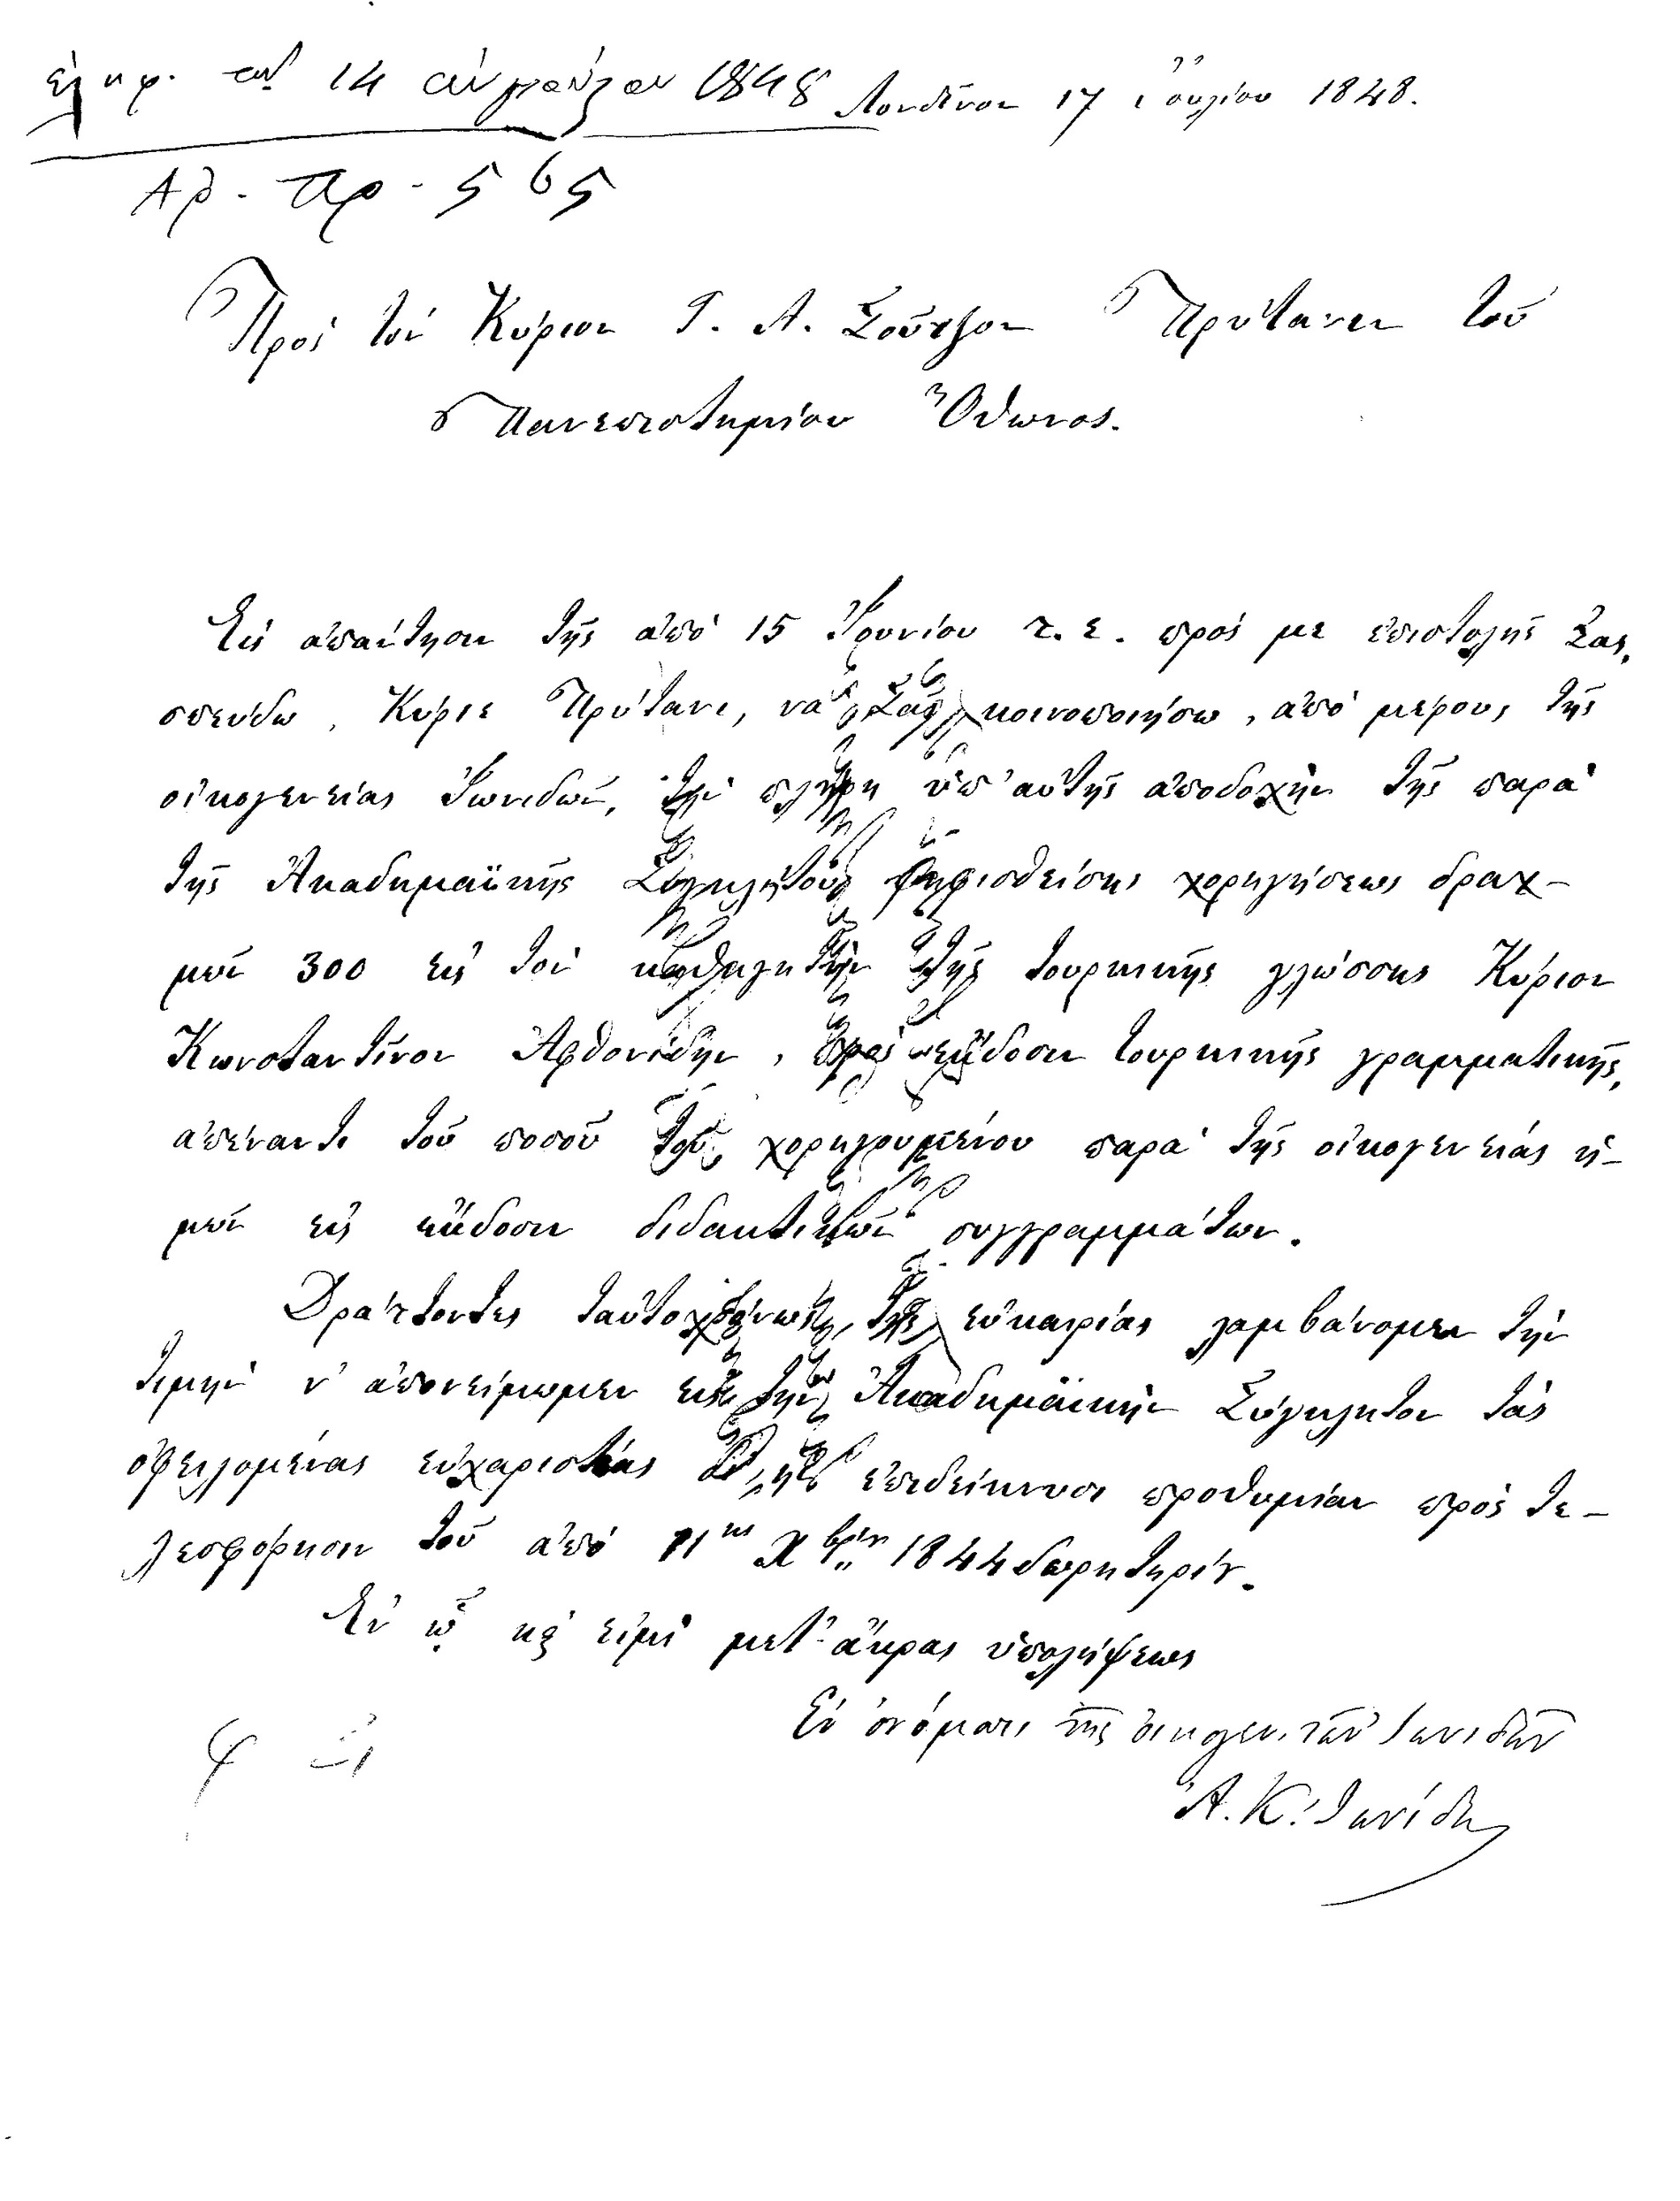 ἐλήφ. τῇ 14 αὐγούστου 1848 Λονδῖνον 17 Ἰουλίου 1848.
Αρ. πρ. 565
Πρὸς τὸν Κύριον Γ. Α. Σοῦτζον Πρύτανιν τοῦ
Πανεπιστημίου Ὄθωνος.
Εἰς ἀπαίτησιν τῆς ἀπὸ 15 Ἰουνίου τ. ἔ. πρός με ἐπιστολῆς Σας,
σπεύδω, Κύριε Πρύτανι, νὰ Σᾶς κοινοποιήσω, ἀπὸ μέρους τῆς
οἰκογενείας Ἰωνιδῶν, τὴν πλήρη ὑπ' αὐτῆς ἀποδοχὴν τῆς παρὰ
τῆς Ἀκαδημαϊκῆς Συγκλήτου ψηφισθείσης χορηγήσεως δραχ-
μῶν 300 εἰς τὸν καθηγητὴν τῆς τουρκικῆς γλώσσης Κύριον
Κωνσταντῖνον Ἀρθονίδην, πρὸς ἔκδοσιν τουρκικῆς γραμματικῆς,
ἀπέναντι τοῦ ποσοῦ τοῦ χορηγουμένου παρὰ τῆς οἰκογενείας ἡ-
μῶν εἰς ἔκδοσιν διδακτικῶν συγγραμμάτων.
Δράττοντες ταὐτοχρόνως τῆς εὐκαιρίας λαμβάνομεν τὴν
τιμὴν ν' ἀπονείμωμεν εἰς τὴν Ἀκαδημαϊκὴν Σύγκλητον τὰς
ὀφειλομένας εὐχαριστίας δι' ἣν ἐπιδείκνυσι προθυμίαν πρὸς τε-
λεσφόρησιν τοῦ ἀπὸ 11ης Χβρίου 1844 δωρητηρίου.
Ἐν ᾧ καὶ εἰμὶ μετ' ἄκρας ὑπολήψεως
Ἐν ὀνόματι τῆς οἰκογεν. τῶν Ἰωνιδῶν
Ἀ. Κ. Ἰωνίδης